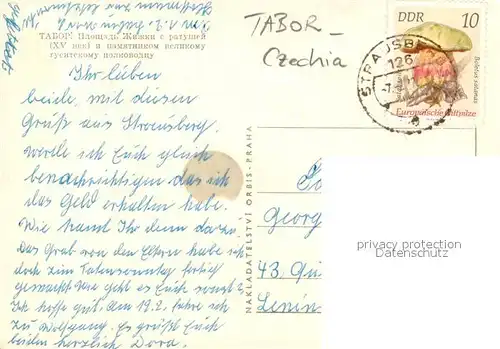 TABOR –
Czechia
DDR 10
Boletus satanas
Europäische Giftpilze
STRAUSBERG
126
ТАБОР: Площадь Жижки с ратушей
(XV век) и памятником великому
гуситскому полководцу
Ihr lieben
beide, mit diesen
Gruß aus Strausberg
werde ich Euch gleich
benachrichtigen das ich
das Geld erhalten habe.
Wie kamt Ihr denn dazu.
Das Grab von den Eltern habe ich
doch zum Totensonntag fertig
gemacht. Wie geht es Euch sonst?
Ich hoffe gut. am 19.2. fahre ich
zu Wolfgang. Es grüßt Euch
beiden herzlich Dora.
NAKLADATELSTVÍ ORBIS - PRAHA
Georg
43.
Lenin
privacy protection
Datenschutz